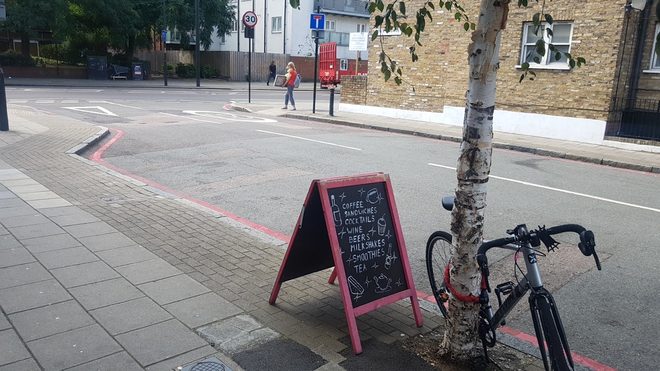 30
COFFEE
SANDWICHES
COCKTAILS
WINE
BEERS
MILKSHAKES
SMOOTHIES
TEA